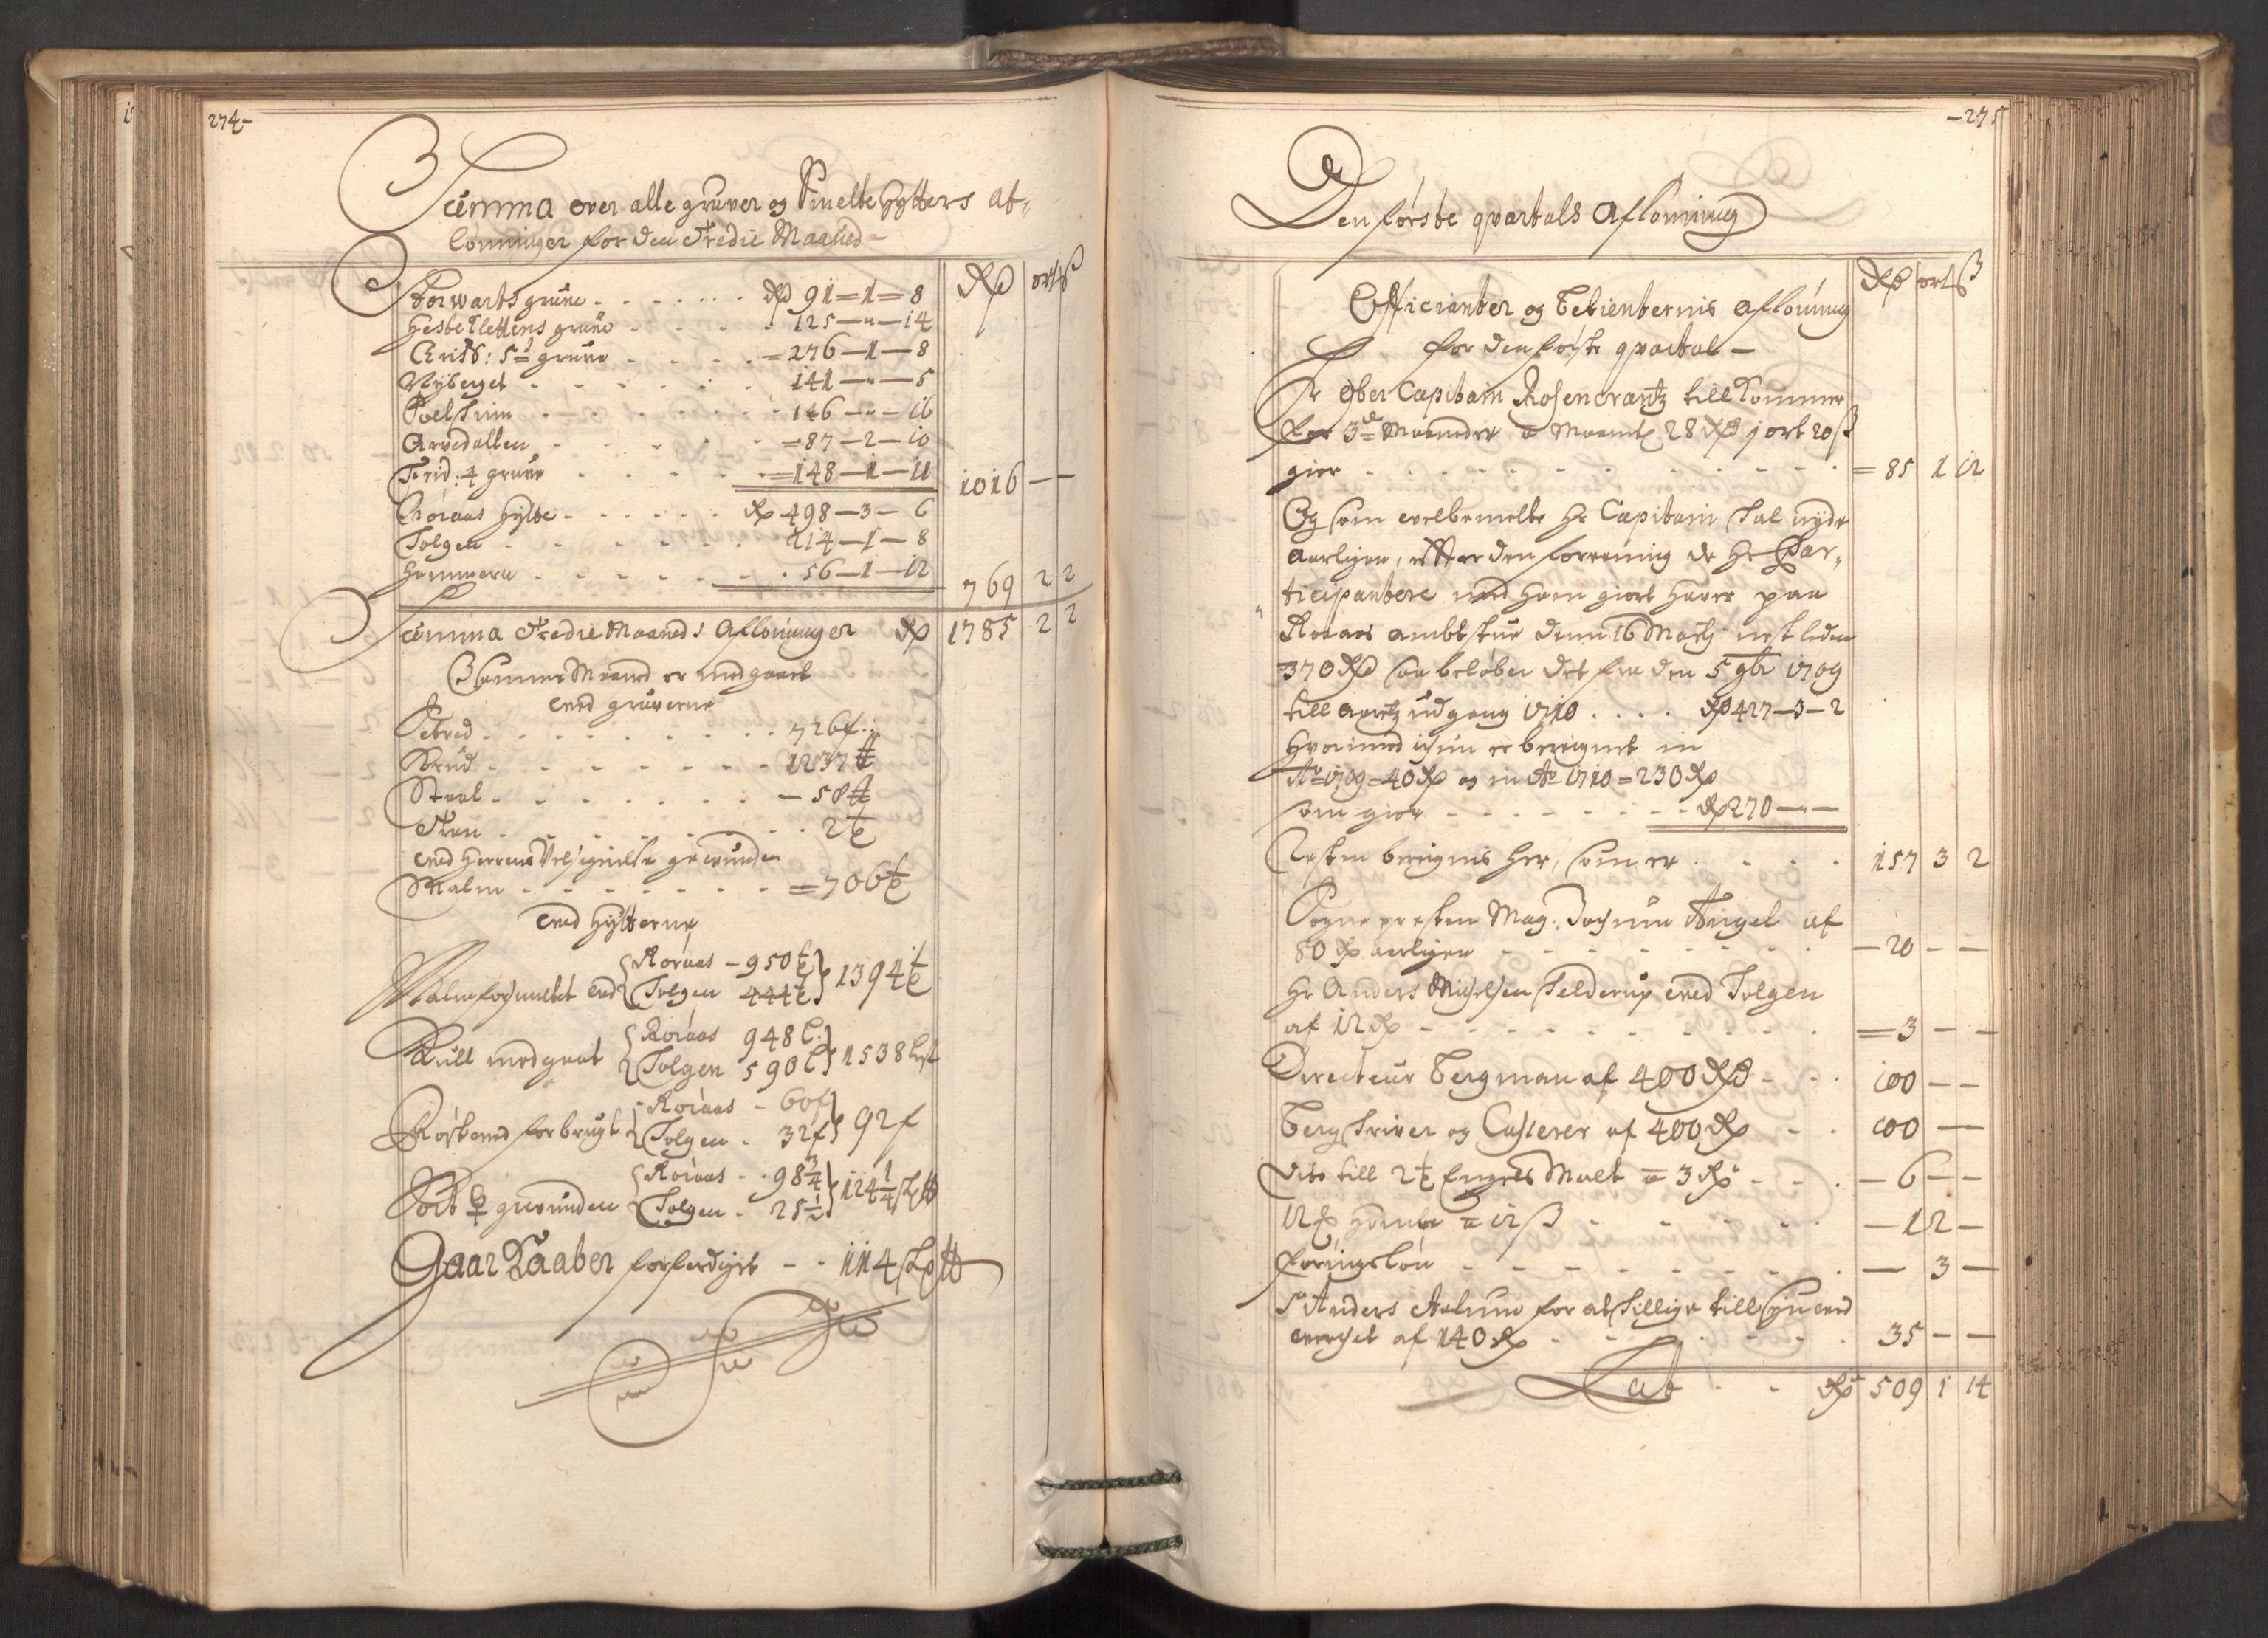 274-
Summa over alle gruver og Smeltehytters af„
lönninger for den Tredie Maaned-
Rd ort ß
Storwarts gruve - - - Rd 91=1=8
Hestekletens gruve - - - 125-"-14
Christ: 5te gruve - - - =276-1-8
Nyberget - - - 141-"-5
Soelskin - - - 146-"-16
Arvedallen - - - =87-2-10
Frid: 4 gruve - - - =148-1-11 1016 - -
Röraas Hytte - - - Rd 498-3-6
Tolgen - - - 214-1-8
Hommern - - - 56-1-12 769 2 2
Summa Tredie Maaneds Aflöninger Rd 1785 2 2
Denne Maaned er medgaaet
ved gruverne
Setved - - - 726 f
Krud - - - 1237 ℔
Staal - - - -58 ℔
- - - 2 t
ved Herrens Velsignelse gevunden
Malm - - - =706 t
ved Hytterne
Malm forsmeltet ved { Röraas - 950 t } 1394 t
{ Tolgen 444 t }
Kull medgaaet { Röraas 948 l } 1538 lest
{ Tolgen 590 l }
Röstved forbrugt { Röraas - 60 f } 92 f
{ Tolgen - 32 f }
Sort ♀ gevunden { Röraas - - 98 3/4 } 124 1/4 S℔
{ Tolgen - 25 1/2 }
Gaar Kaaber forferdiget - - 114 S℔
-275
Den förste qvartals Aflönning
Rd ort ß
Officianter og betienternis Aflönning
for den förste qvartal -
Hr Ober Capitain Rosencrantz till Commer
for 3de Maaneder a Maanet 28 Rd 1 ort 20 ß
giör - - - =85 1 12
Og som velbemelte Hr Capitain skal nyde
Aarligen, effter den forening de Hr Par„
ticipantere med ham giort haver paa
Röraas ambtstue denn 16 Martz nest leden
370 Rd saa beløber det fra den 5 9br 1709
till aaretz udgang 1710 . . . . Rd 427-3-2
Hvorimod er bereignet in
Ao 1709=40 Rd og in Ao 1710=230 Rd
som giör - - - Rd 270-"-
Resten bereignes her, som er - - - 157 3 2
Sogne presten Mag: Jochum Angel af
80 Rd aarligen - - - -20 - -
Hr Anders Michelsen Felderup ved Tolgen
af 12 Rd - - - =3 - -
Directeur Bergman af 400 Rd - - - 100 - -
Bergskriver og Casserer af 400 Rd - - 100 -
Dito till 2 t Engels Malt a 3 Rd - - - - 6 - -
12 ℔ Homle a 12 ß - - - - 1 2 -
föringslön - - - - 3 -
Sr Anders for at tillige till syn ved
vercket af 140 Rd - - - 35 - -
Lat - - Rd 509 1 14